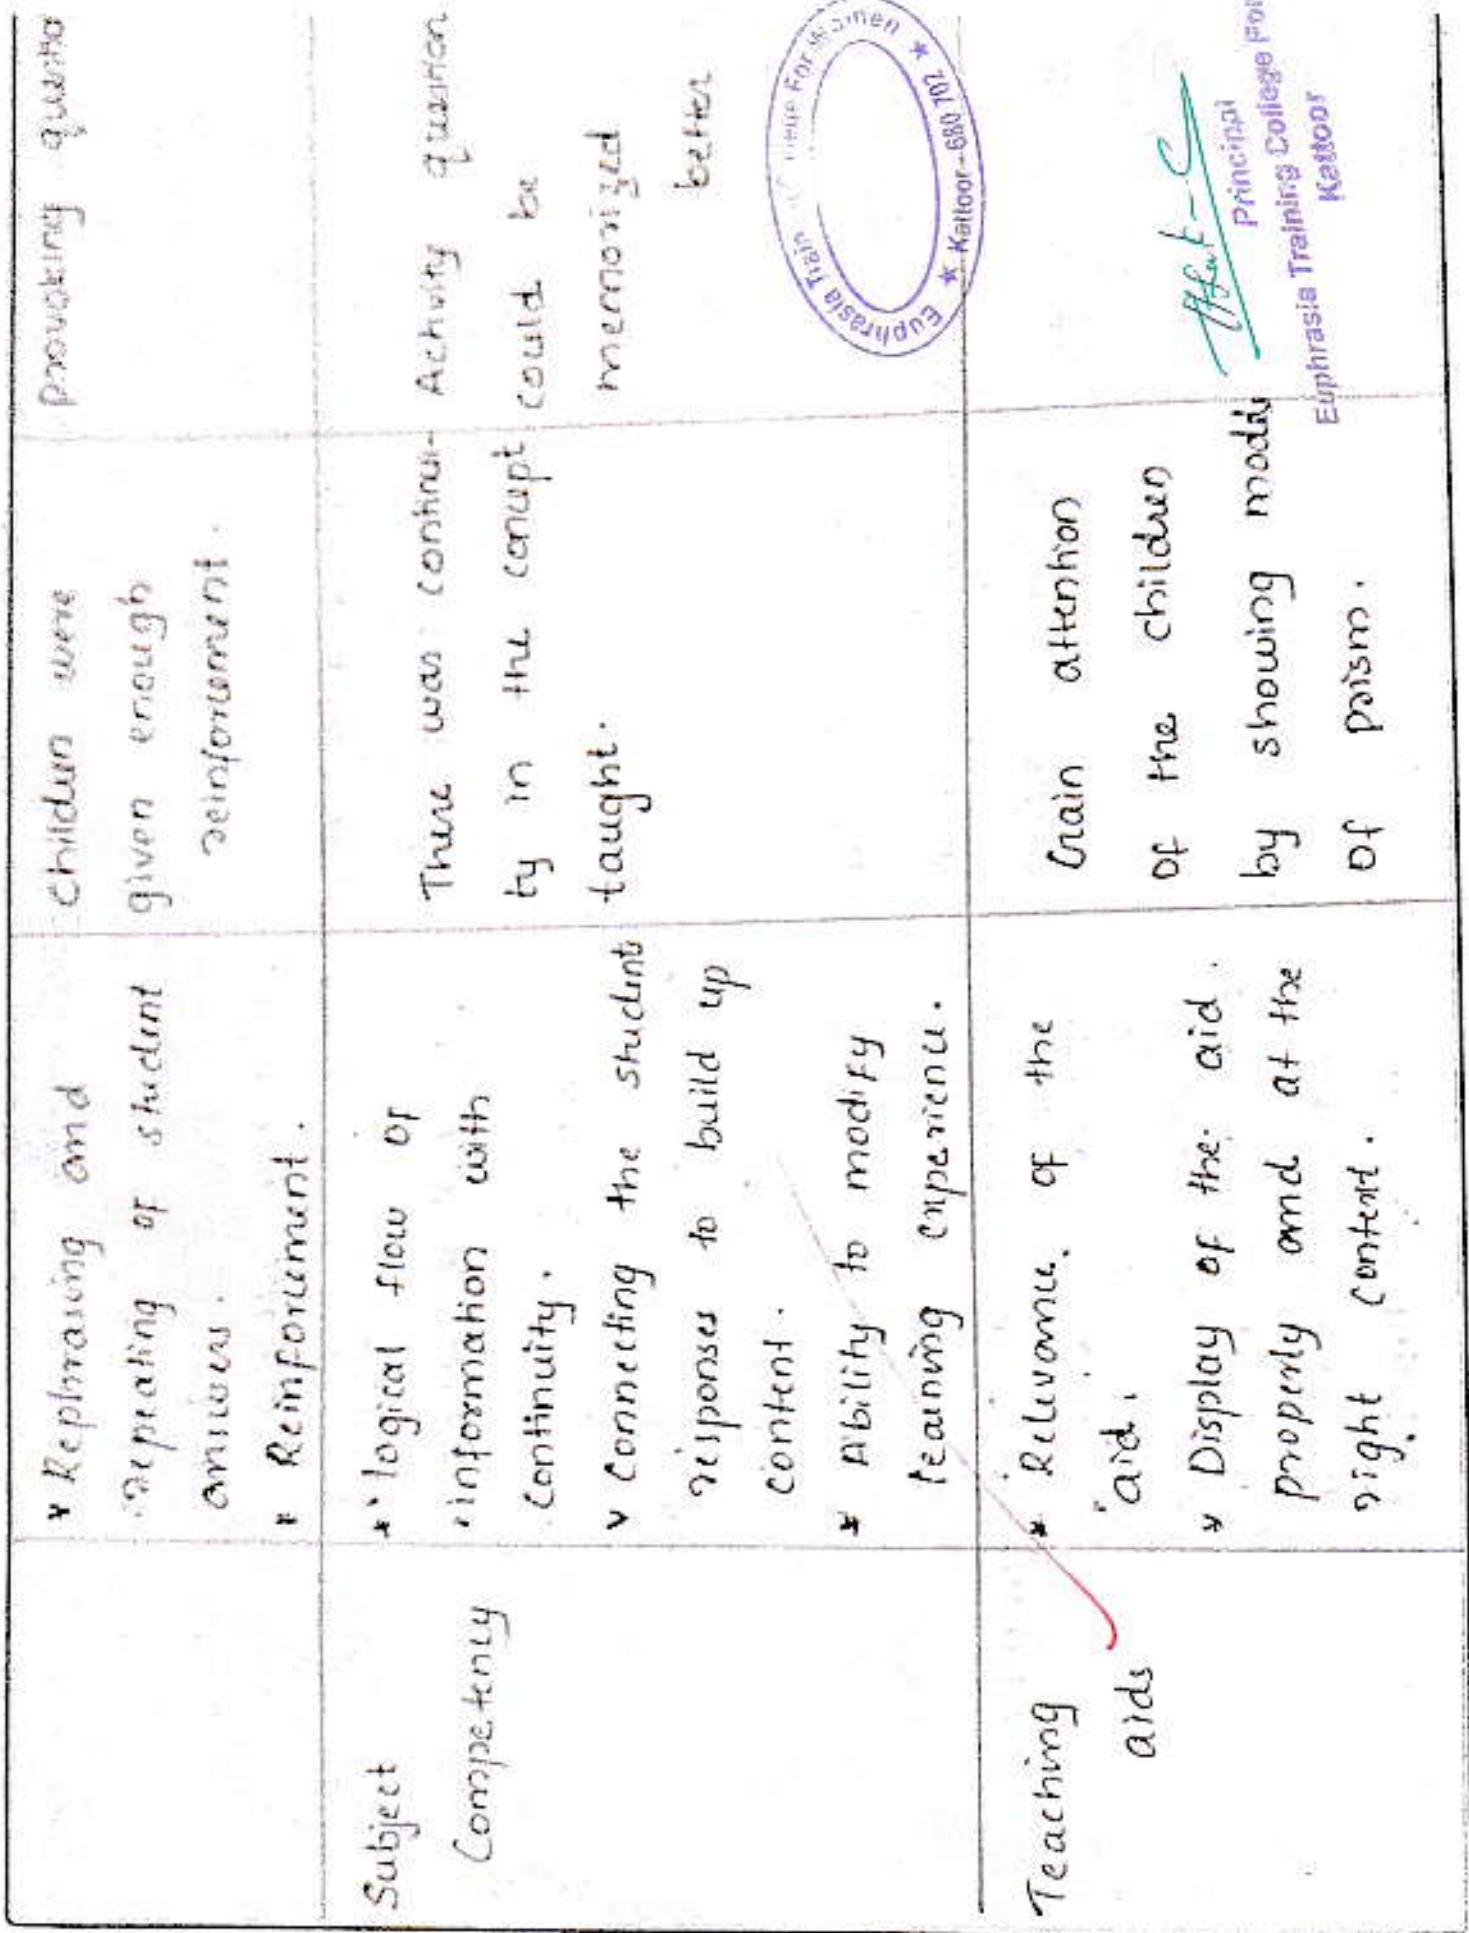 * Rephrasing and
repeating of student
answers.
* Reinforcement.
children were
given enough
reinforcement.
provoking
Subject
Competency
* logical flow of
information with
continuity.
* Connecting the student
responses to build up
content.
* Ability to modify
learning experience.
There was continui-
ty in the concept
taught.
Activity question
could be
memorized
better
Teaching
aids
* Relevance of the
aid.
* Display of the aid
properly and at the
right content.
Gain attention
of the children
by showing
of prism.
Euphrasia Training College For Women
* Kattoor-680 702 *
Principal
Euphrasia Training College For
Kattoor